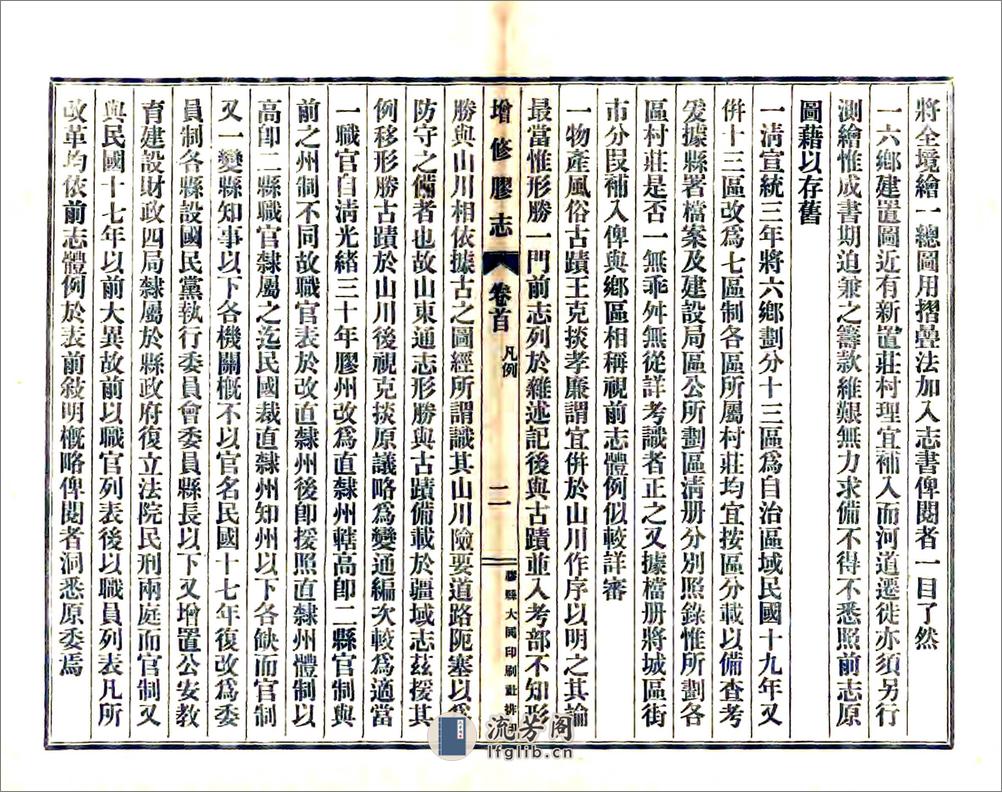 將全境繪一總圖用摺疊法加入志書俾閱者一目了然
一六鄉建置圖近有新置莊村理宜補入而河道遷徙亦須另行
測繪惟成書期迫兼之籌款維艱無力求備不得不悉照前志原
圖藉以存舊
一淸宣統三年將六鄉劃分十三區為自治區域民國十九年又
併十三區改爲七區制各區所屬村莊均宜按區分載以備查考
爰據縣署檔案及建設局區公所劃區淸册分別照錄惟所劃各
區村莊是否一無乖舛無從詳考識者正之又據檔册將城區街
市分段補入俾與鄉區相稱視前志體例似較詳審
一物產風俗古蹟王克掞孝廉謂宜併於山川作序以明之其論
最當惟形勝一門前志列於雜述記後與古蹟並入考部不知形
增修膠志 卷首 凡例 二 膠縣大同印刷社排印
勝與山川相依據古之圖經所謂識其山川險要道路阨塞以爲
防守之備者也故山東通志形勝與古蹟備載於疆域志茲援其
例移形勝古蹟於山川後視克掞原議略爲變通編次較為適當
一職官自淸光緒三十年膠州改爲直隸州轄高卽二縣官制與
前之州制不同故職官表於改直隸州後卽援照直隸州體制以
高卽二縣職官隸屬之迄民國裁直隸州知州以下各缺而官制
又一變縣知事以下各機關槪不以官名民國十七年復改爲委
員制各縣設國民黨執行委員會委員縣長以下又增置公安教
育建設財政四局隸屬於縣政府復立法院民刑兩庭而官制又
與民國十七年以前大異故前以職官列表後以職員列表凡所
改革均依前志體例於表前敍明槪略俾閱者洞悉原委焉
流芳阁
lfglib.cn